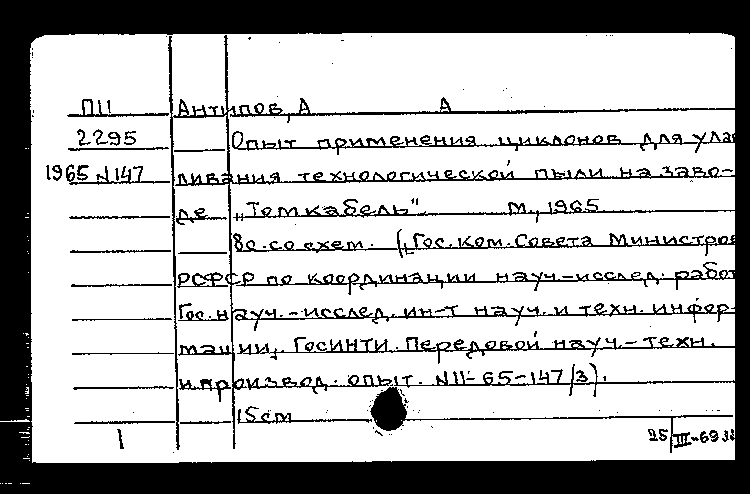 П11 Антипов, А А
2295 Опыт применения циклонов для улав
1965 N147 ливания технологической пыли на заво-
де "Томкабель" М., 1965
8с. со схем. (Гос. ком. Совета Министров
РСФСР по координации науч.-исслед. работ
Гос. науч.-исслед. ин-т науч. и техн. инфор-
мации, ГОСИНТИ. Передовой науч.-техн.
и производ. опыт. N11-65-147/3).
15 cm
1 25/III-69